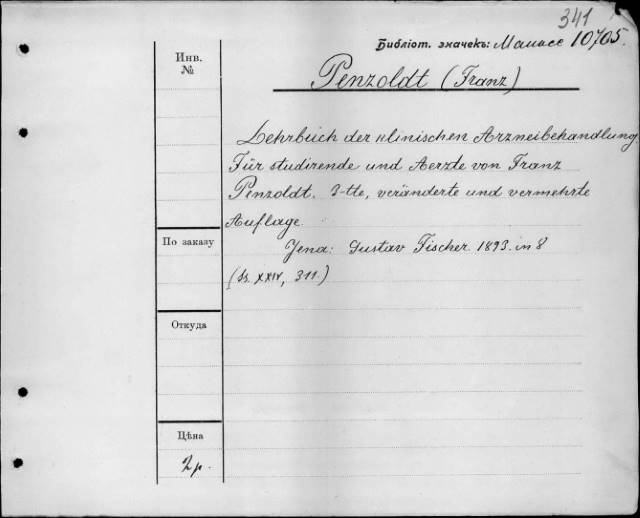 341
Библіот. значекъ: Манасе 10705.
Инв.
№
Penzoldt (Franz)
Lehrbuch der klinischen Arzneibehandlung.
Für studirende und Aerzte von Franz
Penzoldt. 3-tte, veränderte und vermehrte
Auflage.
По заказу
Jena: Gustav Fischer. 1893. in 8
(SS. XXIV, 311.)
Откуда
Цѣна
2 р.